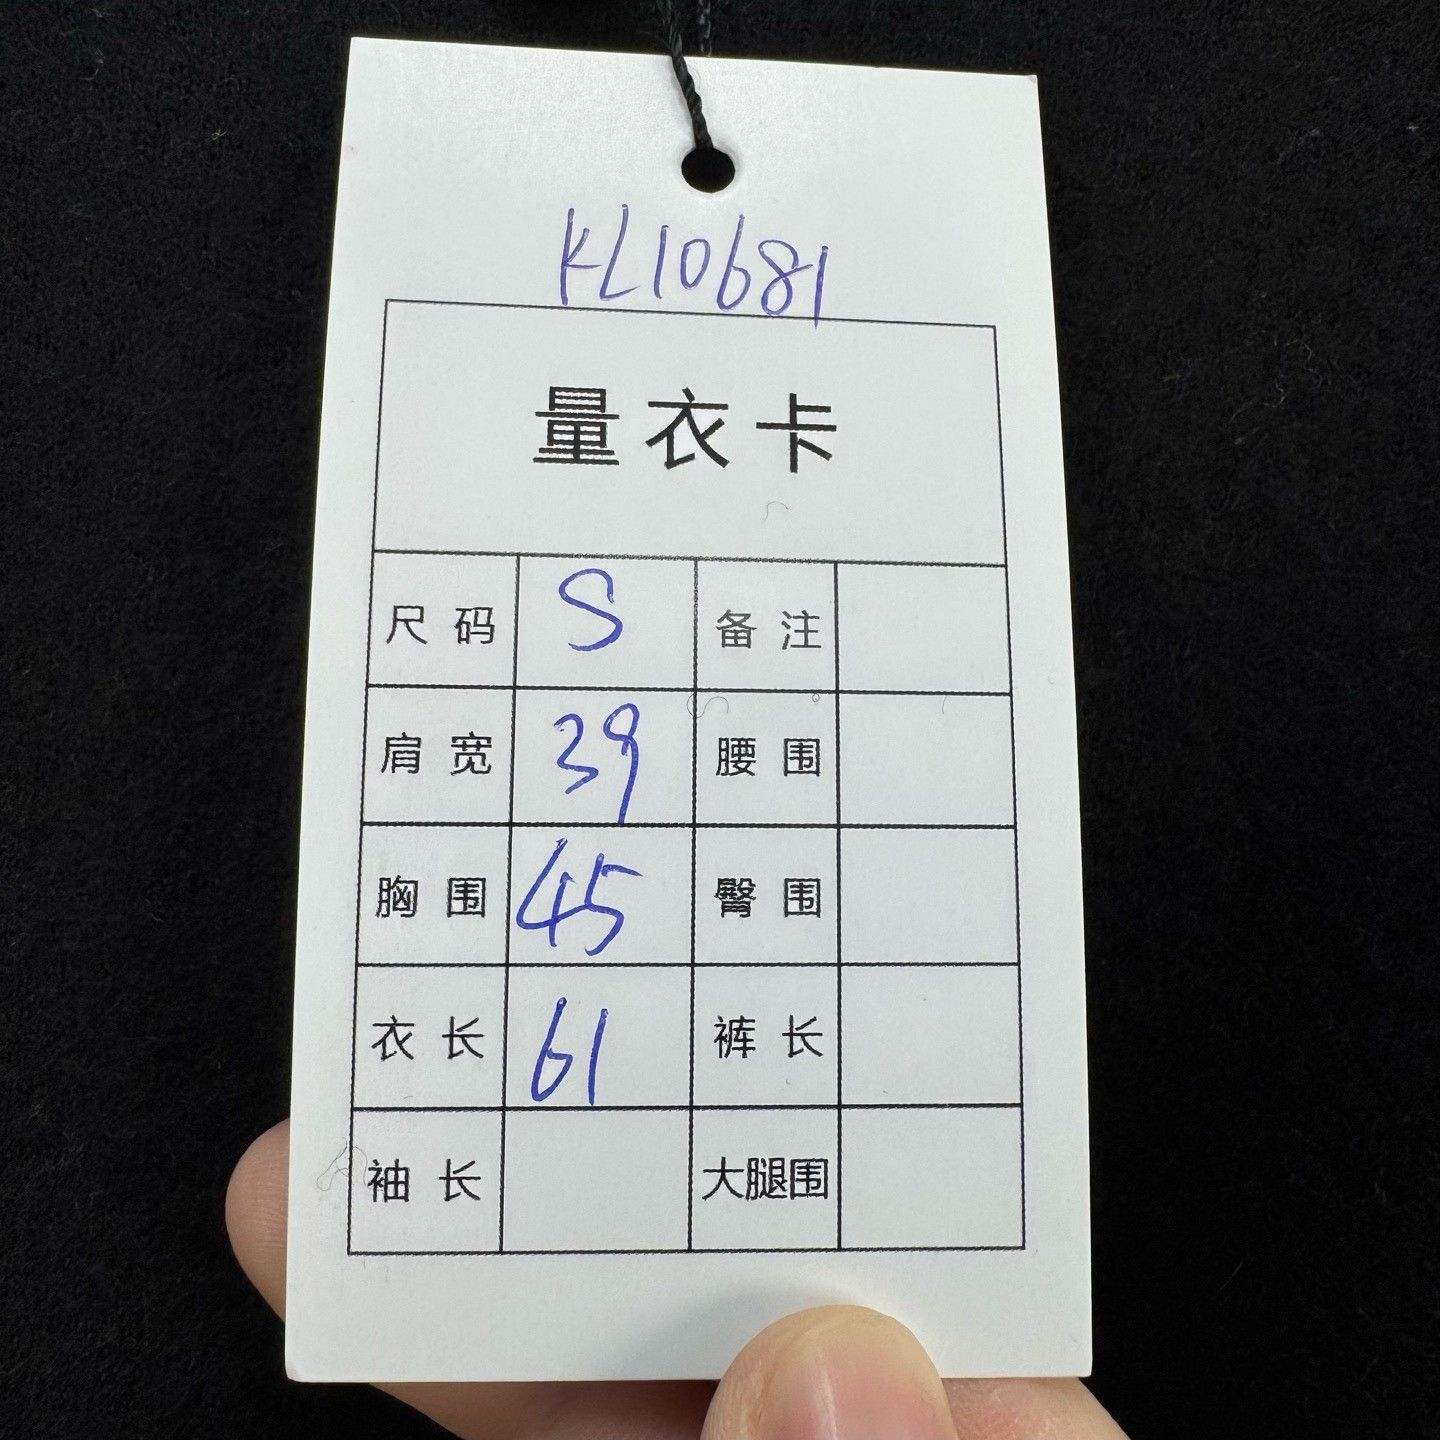 KL10681
量衣卡
尺码 S 备注
肩宽 39 腰围
胸围 45 臀围
衣长 61 裤长
袖长 大腿围